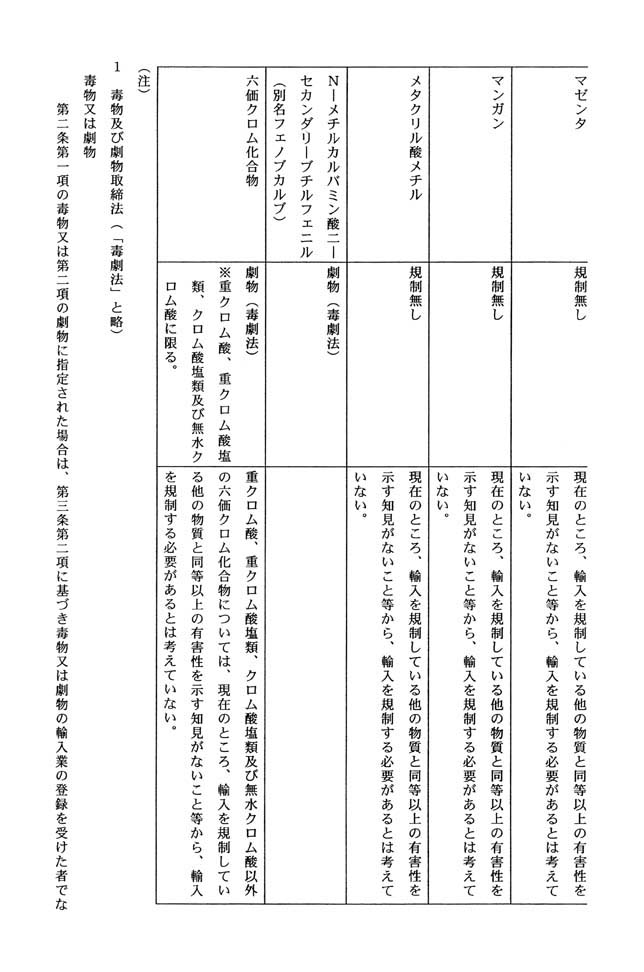 マゼンタ
規制無し
現在のところ、輸入を規制している他の物質と同等以上の有害性を
示す知見がないこと等から、輸入を規制する必要があるとは考えて
いない。
マンガン
規制無し
現在のところ、輸入を規制している他の物質と同等以上の有害性を
示す知見がないこと等から、輸入を規制する必要があるとは考えて
いない。
メタクリル酸メチル
規制無し
現在のところ、輸入を規制している他の物質と同等以上の有害性を
示す知見がないこと等から、輸入を規制する必要があるとは考えて
いない。
N―メチルカルバミン酸二―
セカンダリ―ブチルフェニル
(別名フェノブカルブ)
劇物(毒劇法)
六価クロム化合物
劇物(毒劇法)
※重クロム酸、重クロム酸塩
類、クロム酸塩類及び無水ク
ロム酸に限る。
重クロム酸、重クロム酸塩類、クロム酸塩類及び無水クロム酸以外
の六価クロム化合物については、現在のところ、輸入を規制してい
る他の物質と同等以上の有害性を示す知見がないこと等から、輸入
を規制する必要があるとは考えていない。
(注)
1 毒物及び劇物取締法(「毒劇法」と略)
毒物又は劇物
第二条第一項の毒物又は第二項の劇物に指定された場合は、第三条第二項に基づき毒物又は劇物の輸入業の登録を受けた者でな